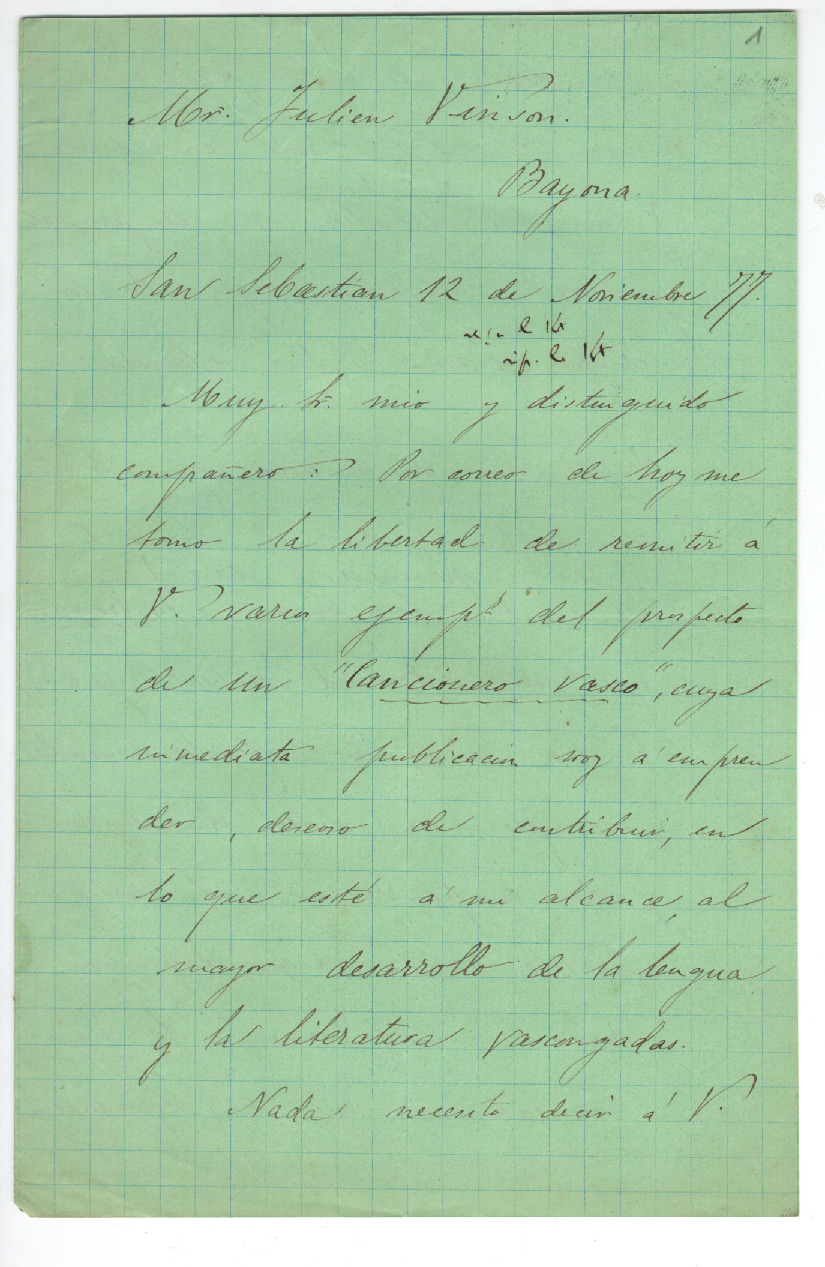 1
Mr. Julien Vinson.
Bayona.
San Sebastian 12 de Noviembre 77.
le 14
rép. le 14
Muy Sr. mio y distinguido
compañero: Por correo de hoy me
tomo la libertad de remitir á
V. varios ejemps del prospecto
de un "Cancionero Vasco", cuya
inmediata publicacion voy á empren
der, deseoso de contribuir, en
lo que esté á mi alcance, al
mayor desarrollo de la lengua
y la literatura vascongadas.
Nada necesito decir á V.